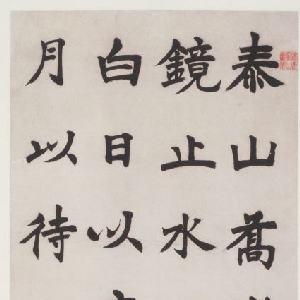 泰山喬
鏡止水
白日以
月以待